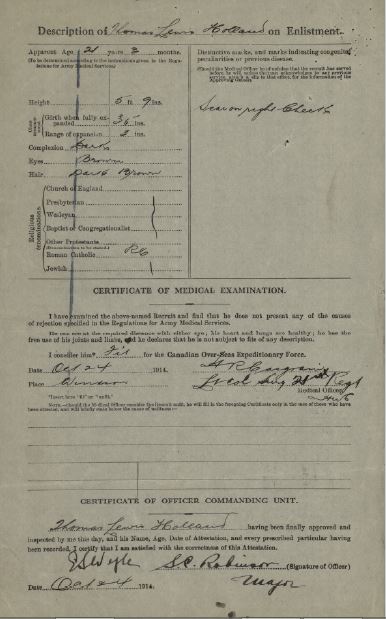 Description of Thomas Lewis Holland on Enlistment.
Apparent Age 21 years 2 months.
(To be determined according to the instructions given in the Regulations for Army Medical Services)
Distinctive marks, and marks indicating congenital peculiarities or previous disease.
(Should the Medical Officer be of opinion that the recruit has served before, he will, unless the man acknowledges to any previous service, attach a slip to that effect, for the information of the Approving Officer).
Height 5 ft 9 ins.
Scar on right Cheek
Girth when fully expanded 36 ins.
Range of expansion 3 ins.
Complexion Dark
Eyes Brown
Hair Dark Brown
Religious denominations
Church of England
Presbyterian
Wesleyan
Baptist or Congregationalist
Other Protestants
(Denomination to be stated.)
Roman Catholic RC
Jewish
CERTIFICATE OF MEDICAL EXAMINATION.
I have examined the above-named Recruit and find that he does not present any of the causes
of rejection specified in the Regulations for Army Medical Services.
He can see at the required distance with either eye; his heart and lungs are healthy; he has the
free use of his joints and limbs, and he declares that he is not subject to fits of any description.
I consider him* Fit for the Canadian Over-Seas Expeditionary Force.
Date Oct 24 1914.
Place Windsor
Medical Officer.
*Insert here "fit" or "unfit."
NOTE.—Should the Medical Officer consider the Recruit unfit, he will fill in the foregoing Certificate only in the case of those who have
been attested, and will briefly state below the cause of unfitness:—
CERTIFICATE OF OFFICER COMMANDING UNIT.
Thomas Lewis Holland having been finally approved and
inspected by me this day, and his Name, Age, Date of Attestation, and every prescribed particular having
been recorded, I certify that I am satisfied with the correctness of this Attestation.
S.C. Robinson (Signature of Officer)
Major
Date Oct 24 1914.